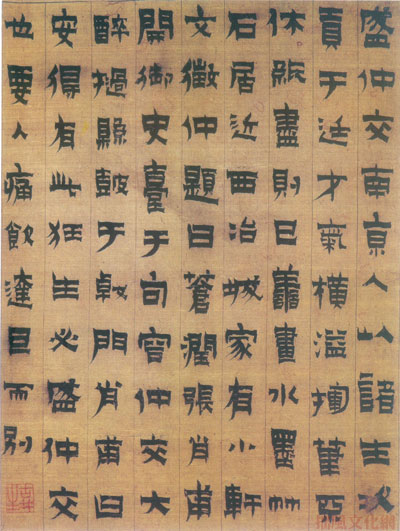 盛仲交南京人以諸生次
貢于廷才氣橫溢揮筆不
休紙盡則已善畫水墨竹
石居近西冶城家有小軒
文徵仲題曰蒼潤張肖甫
開御史臺于句容仲交大
醉撾縣鼓于戟門肖甫曰
安得有此狂生必盛仲交
也要人痛飲達旦而別
文化網